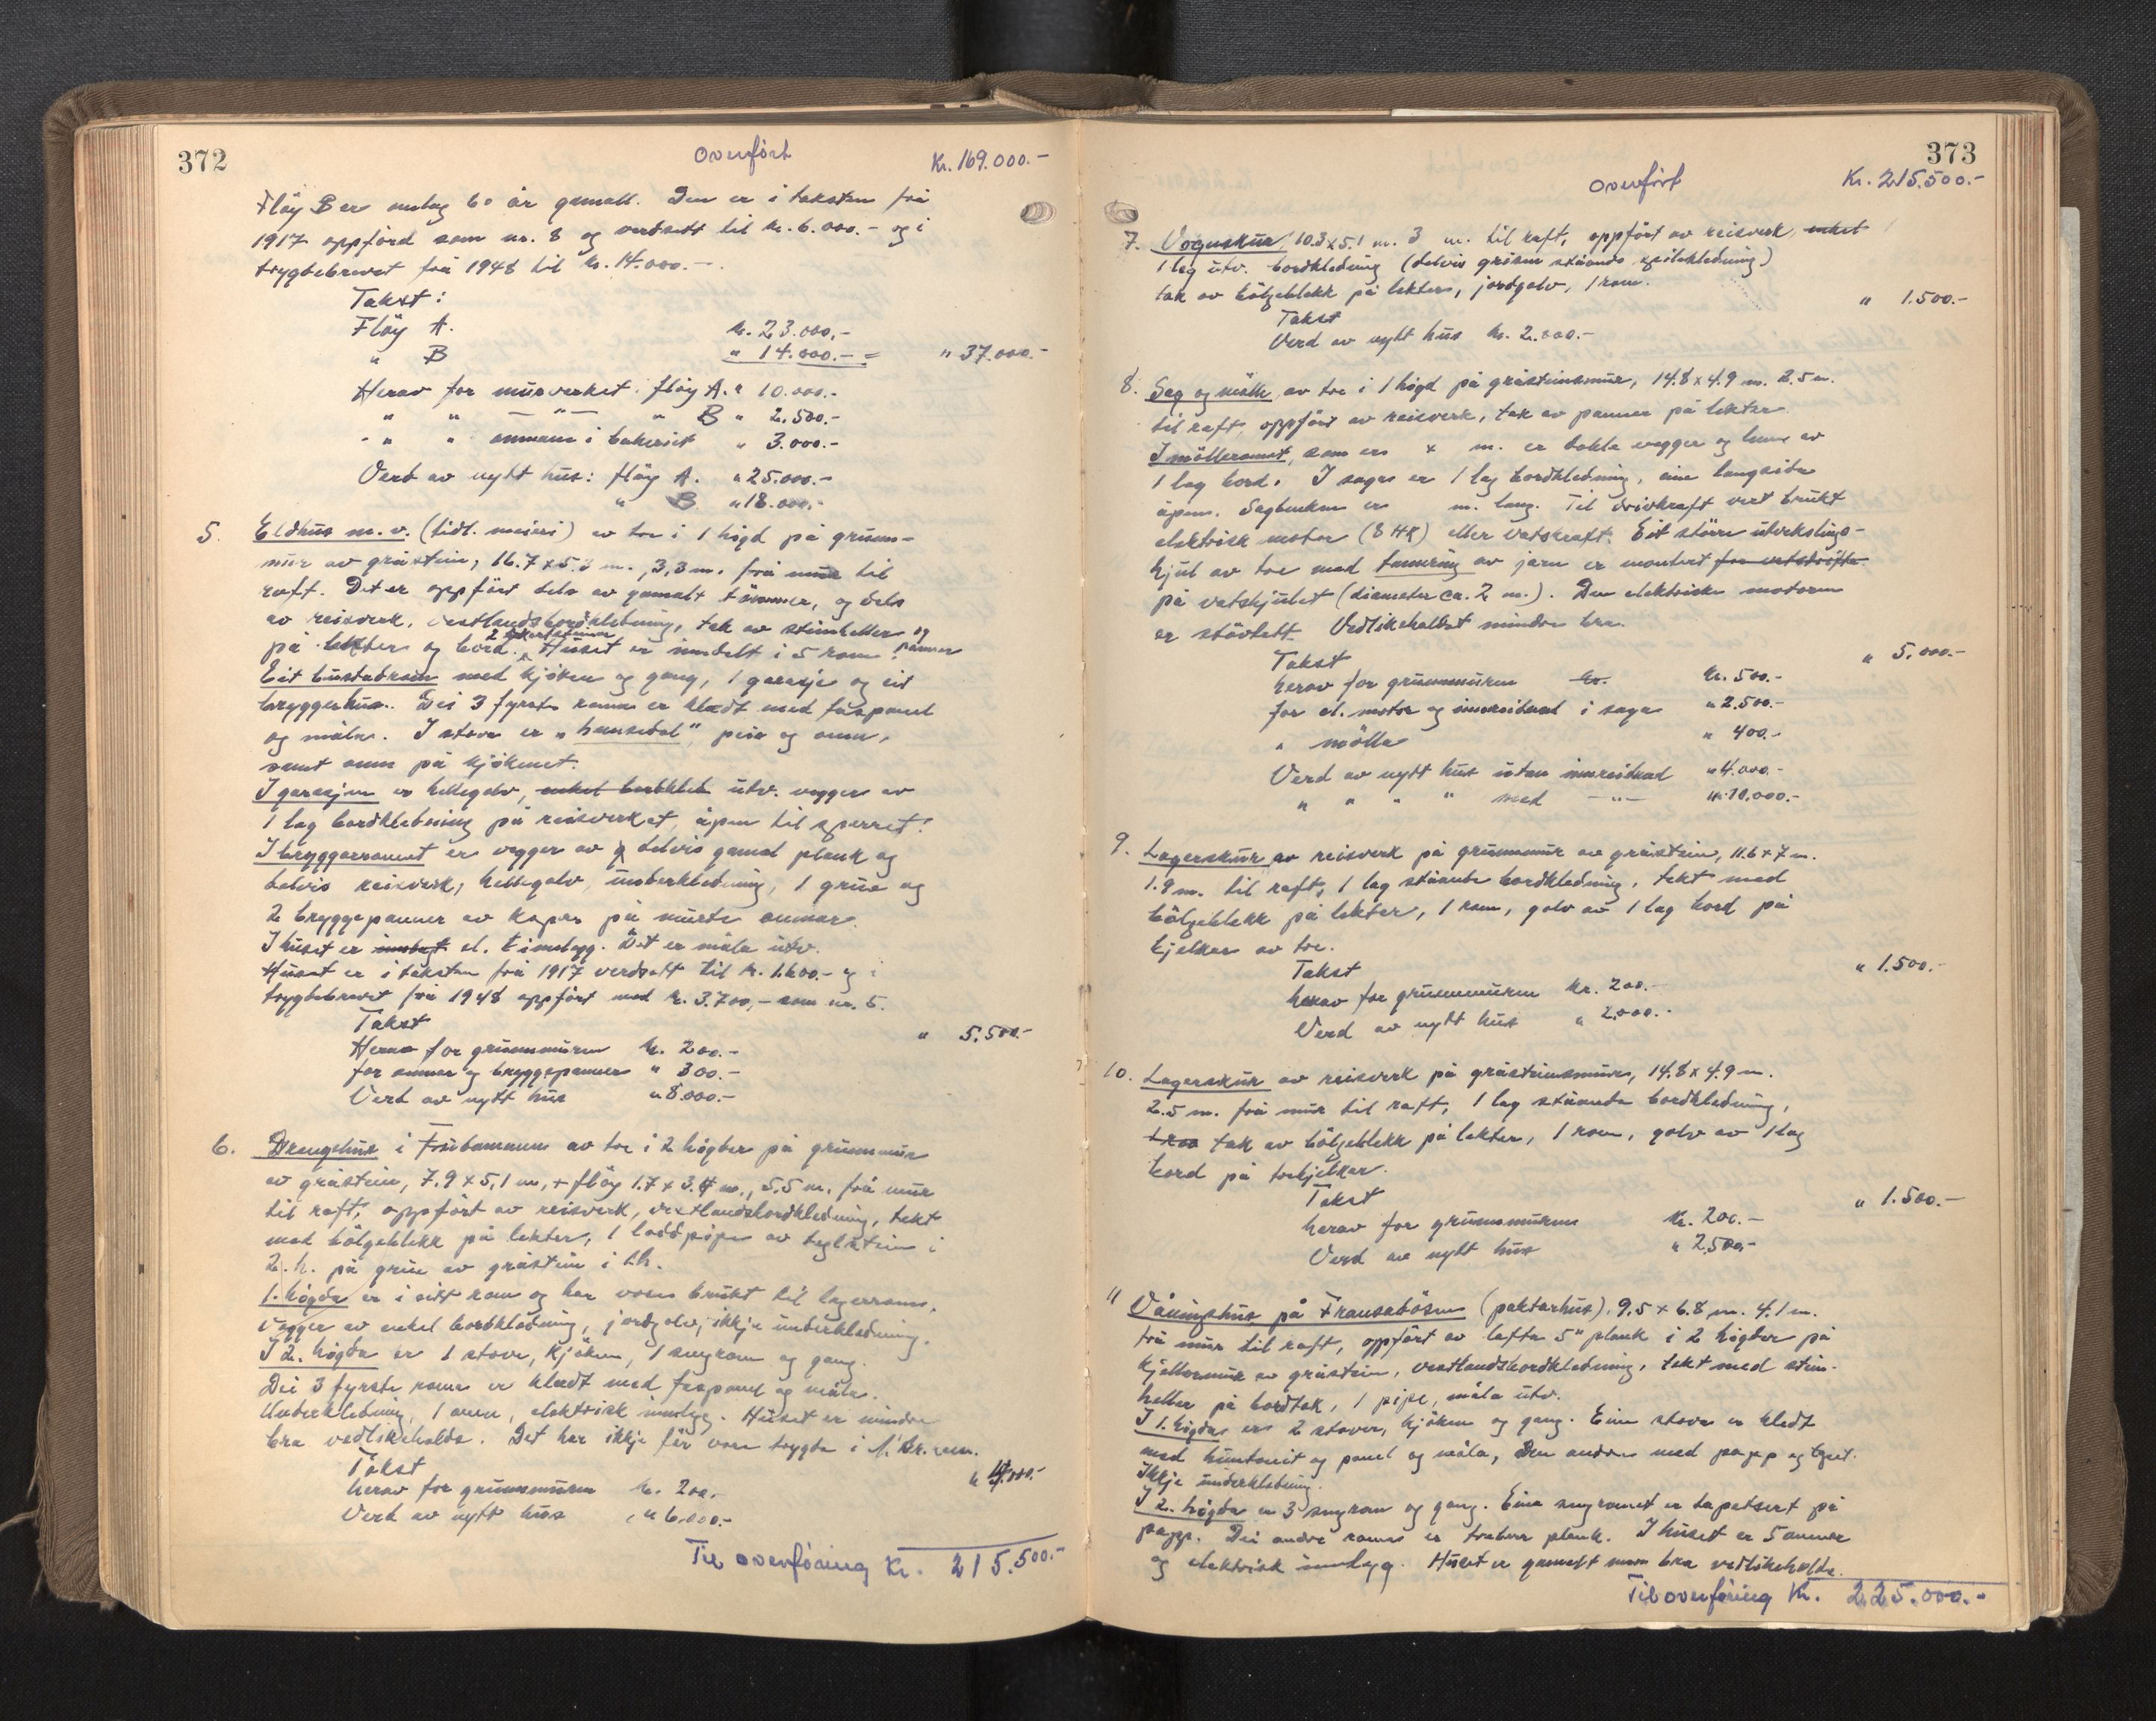 372
Overført Kr. 169.000.-
Fløy B er omlag 60 år gamall. Den er i taksten frå
1917 oppförd som nr. 8 og verdsett til kr. 6.000.- og i
trygdebrevet frå 1948 til kr. 14.000.-.
Takst:
Fløy A. kr. 23.000,-
" B " 14.000.- = " 37.000.-
Herav for murverket: fløy A. " 10.000.-
" " —"— " B " 2.500.-
" " omnane i bakeriet " 3.000.-
Verd av nytt hus: fløy A. " 25.000.-
" B " 18.000.-
5. Eldhus m. v. (tidl. meieri) av tre i 1 högd på grunn-
mur av gråstein, 16.7 x 5.3 m., 3,3 m. frå mur til
raft. Det er oppfört dels av gamalt tömmer, og dels
av reisverk, vestlandsbordkledning, tak av steinheller og
på lekter og bord. 2 skorsteinar Huset er inndelt i 5 rom. panner
Eit bustadrom med kjöken og gang, 1 garasje og eit
bryggerhus. Dei 3 fyrste romma er kledt med faspanel
og måla. I stova er "hansedal" peis og omn,
samt omn på kjökenet.
I garasjen er hellegolv, enkel bordkled utv. vegger av
1 lag bordkledning på reisverket, åpen til sperret!
I bryggerromet er vegger av delvis gamal plank og
delvis reisverk, hellegolv, underkledning, 1 grue og
2 bryggepanner av kopar på murte omnar.
I huset er innlagt el. innlegg. Det er måla utv.
Huset er i taksten frå 1917 verdsatt til kr. 1.600.- og i
trygdebrevet frå 1948 oppfört med kr. 3.700,- som nr. 5.
Takst " 5.500.-
Herav for grunnmuren kr. 200.-
for omnar og bryggepanner " 300.-
Verd av nytt hus " 8.000.-
6. Drengehus i Fridamann av tre i 2 högder på grunnmur
av gråstein, 7.9 x 5,1 m, + flöy 1.7 x 3.4 m., 5,5 m. frå mur
til raft, oppfört av reisverk, vestlandsbordkledning, tekt
med bölgeblekk på lekter, 1 loddpipe av teglstein i
2. h. på grue av gråstein i 1.h.
1. högda er i eitt rom og har vore brukt til lagerrom.
Vegger av enkel bordkledning, jordgolv, ikkje underkledning.
I 2. högda er 1 stove, kjöken, 1 sengrom og gang.
Dei 3 fyrste romma er kledt med faspanel og måla.
Underkledning, 1 omn, elektrisk innlegg. Huset er mindre
bra vedlikeholde. Det har ikkje før vore trygda i N. Br. kassa.
Takst " 4.000.-
herav for grunnmuren kr. 200.-
Verd av nytt hus " 6.000.-
Til overføring Kr. 215.500.-
373
Overført Kr. 215.500.-
7. Vognskur 10.3 x 5.1 m. 3 m. til raft, oppfört av reisverk, enkel
1 lag utv. bordkledning (delvis grisen ståande spilekledning)
tak av bölgeblekk på lekter, jordgolv, 1 rom.
Takst " 1.500.-
Verd av nytt hus kr. 2.000.-
8. Sag og mölle av tre i 1 högd på gråsteinsmur, 14.8 x 4.9 m. 2.5 m.
til raft, oppfört av reisverk, tak av panner på lekter
I mölleromet, som er x m. er dobla vegger og lunn av
1 lag bord. I saga er 1 lag bordkledning, eine langsida
åpen. Sagbenken er m. lang. Til drivkraft vert brukt
elektrisk motor (8 HK) eller vatskraft. Eit större utvekslings-
hjul av tre med tannring av jarn er montert for vatsdrifta
på vatshjulet (diameter ca. 2 m.). Den elektriske motoren
er stövtett. Vedlikehaldet mindre bra.
Takst " 5.000.-
herav for grunnmuren kr. kr. 500.-
for el. motor og innreidnad i saga " 2.500.-
" mölla " 400.-
Verd av nytt hus utan innreidnad " 4.000.-
" " " " med —"— kr. 10.000.-
9. Lagerskur av reisverk på grunnmur av gråstein, 11.6 x 7 m.
1.9 m. til raft, 1 lag ståande bordkledning, tekt med
bölgeblekk på lekter, 1 rom, golv av 1 lag bord på
bjelker av tre.
Takst " 1.500.-
herav for grunnmuren kr. 200.-
Verd av nytt hus " 2.000.-
10. Lagerskur av reisverk på gråsteinsmur, 14.8 x 4.9 m.
2.5 m. frå mur til raft, 1 lag ståande bordkledning,
1 rom tak av bölgeblekk på lekter, 1 rom, golv av 1 lag
bord på trebjelker.
Takst " 1.500.-
herav for grunnmuren kr. 200.-
Verd av nytt hus " 2.500.-
11 Våningshus på Fransebösen (paktarhus), 9,5 x 6.8 m. 4.1 m.
frå mur til raft, oppfört av lafta 5" plank i 2 högder på
kjellermur av gråstein, vestlandsbordkledning, tekt med stein-
heller på bordtak, 1 pipe, måla utv.
I 1. högda er 2 stover, kjöken og gang. Eine stova er kledt
med huntonit og panel og måla, den andre med papp og
Ikkje underkledning.
I 2. högda er 3 sengrom og gang. Eine sengromet er tapetsert på
papp. Dei andre romma er berre plank. I huset er 5 omnar
og elektrisk innlegg. Huset er gamalt men bra vedlikeholde.
Til overføring Kr. 225.000.-